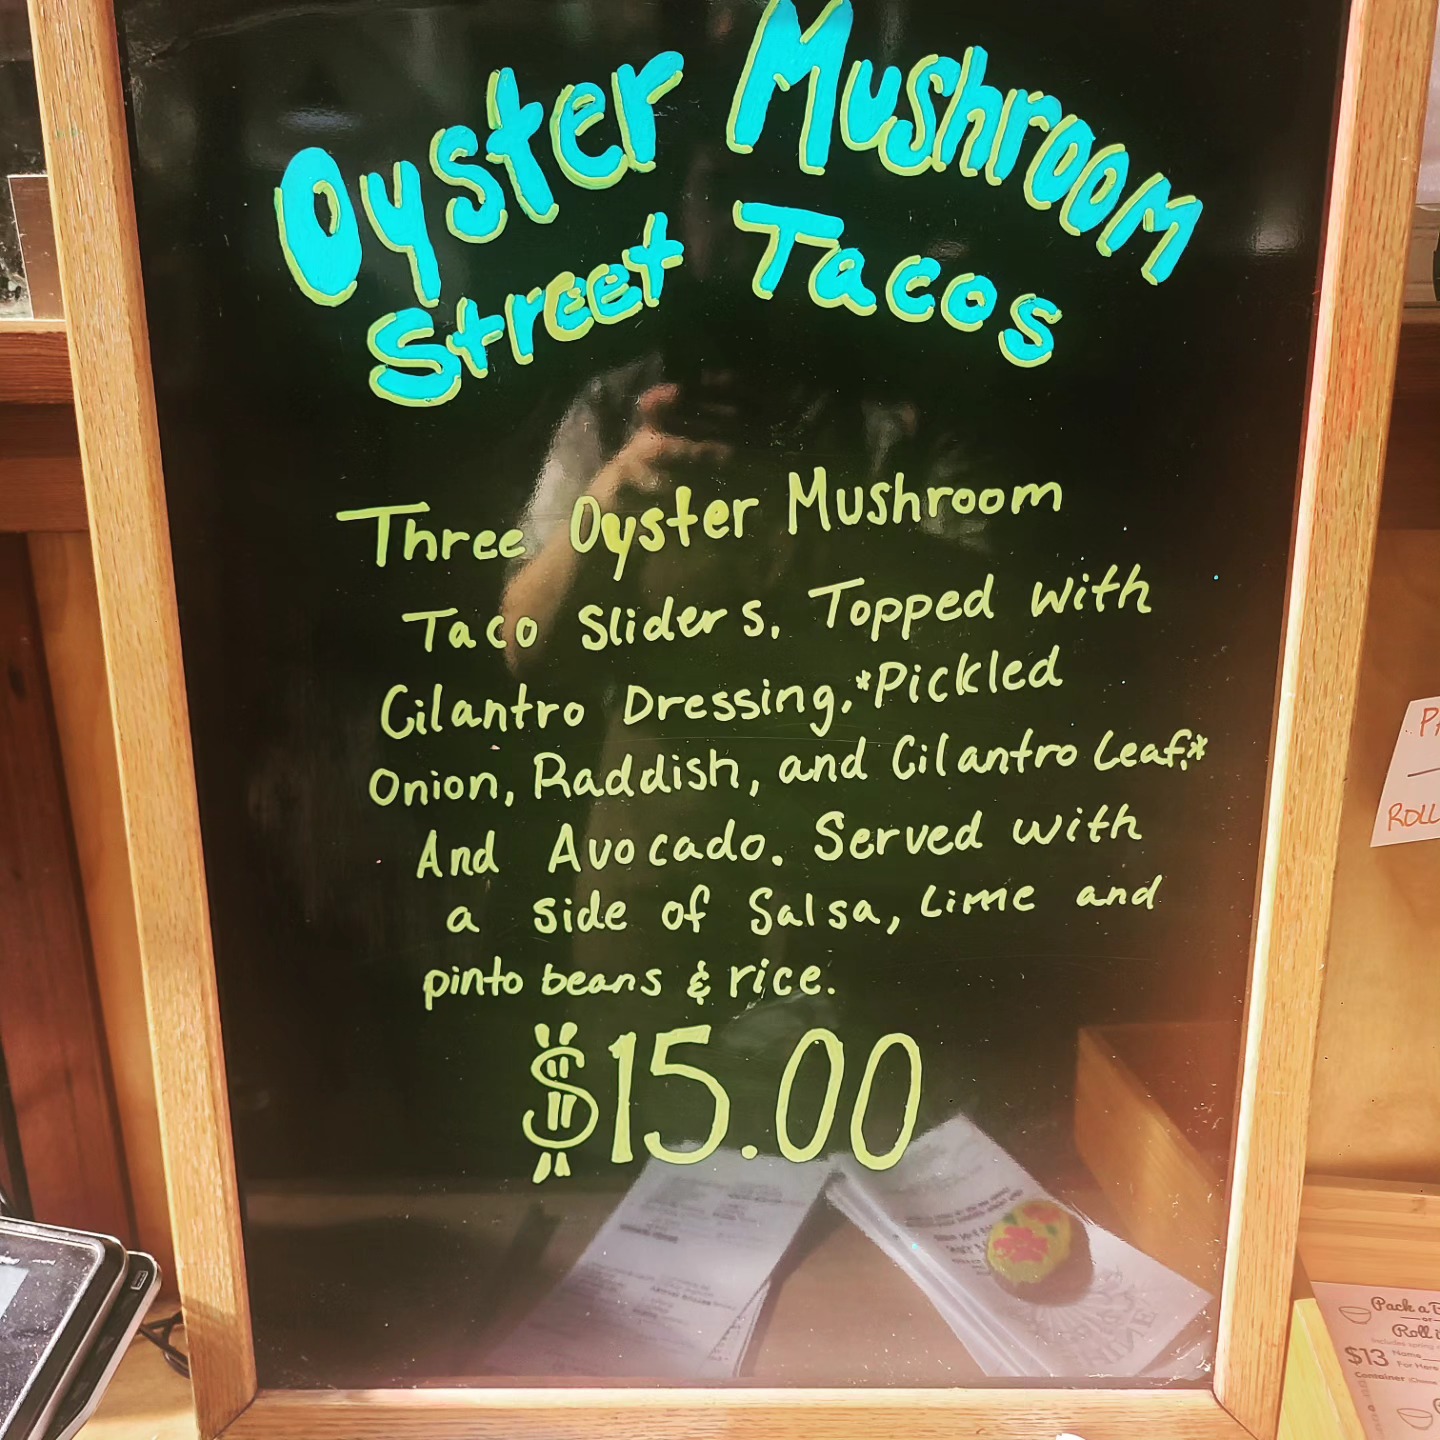 Oyster Mushroom
Street Tacos
Three Oyster Mushroom
Taco Sliders. Topped with
Cilantro Dressing,*Pickled
Onion, Raddish, and Cilantro Leaf,*
And Avocado. Served with
a side of Salsa, Lime and
pinto beans & rice.
$15.00
ROLL
Pack a B
or
Roll i
$13
Name
For Here
Container